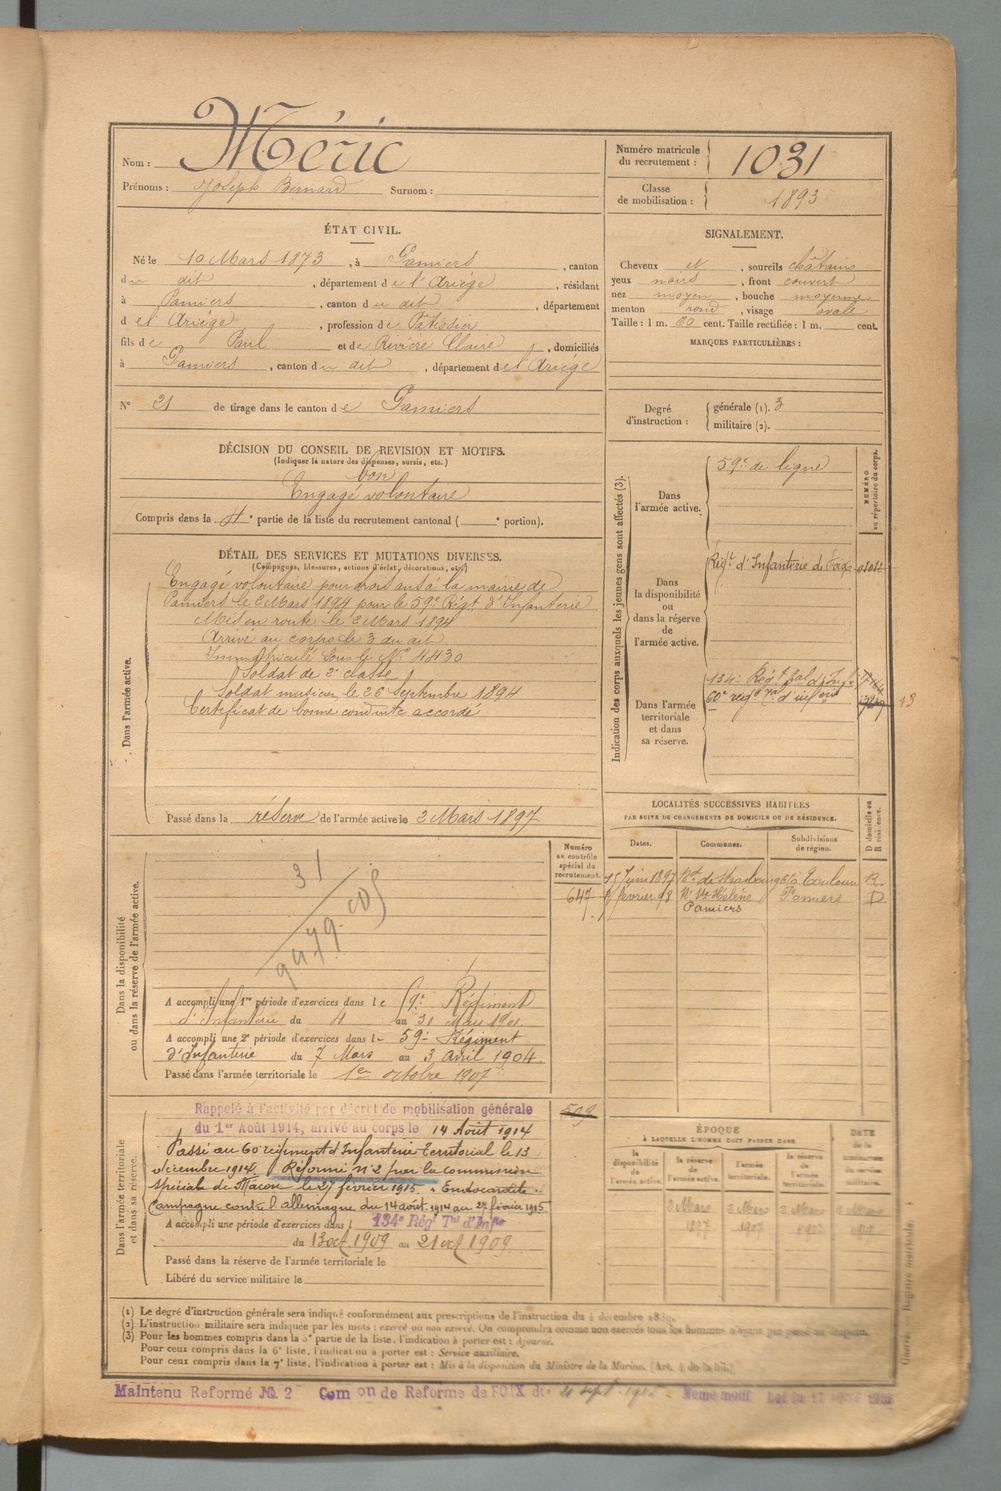 Nom : Méric
Prénoms : Joseph Bernard Surnom :
Numéro matricule
du recrutement : 1031
Classe
de mobilisation : 1893
ÉTAT CIVIL.
Né le 10 Mars 1873, à Pamiers, canton
du dit, département de l'Ariège, résidant
à Pamiers, canton du dit, département
d el Ariège, profession de Patissier
fils de Paul et de Rivière Claire, domiciliés
à Pamiers, canton du dit, département de l'Ariège
N° 21 de tirage dans le canton de Pamiers
SIGNALEMENT.
Cheveux et, sourcils châtains
yeux noirs, front couvert
nez moyen, bouche moyenne
menton rond, visage ovale
Taille : 1 m. 60 cent. Taille rectifiée : 1 m. cent.
MARQUES PARTICULIÈRES :
Degré
d'instruction :
générale (1). 3
militaire (2).
DÉCISION DU CONSEIL DE REVISION ET MOTIFS.
(Indiquer la nature des dispenses, sursis, etc.)
bon
Engagé volontaire
Compris dans la 4e partie de la liste du recrutement cantonal ( e portion).
DÉTAIL DES SERVICES ET MUTATIONS DIVERSES.
(Campagnes, blessures, actions d'éclat, décorations, etc.)
Dans l'armée active.
Engagé volontaire pour trois ans à la mairie de
Pamiers le 2 Mars 1894 pour le 59e Régt d'Infanterie
Mis en route le 2 Mars 1894
Arrivé au corps le 3 du dit
Immatriculé sous le No 4430
Soldat de 2e classe
Soldat musicien le 26 Septembre 1894
Certificat de bonne conduite accordé
Passé dans la réserve de l'armée active le 2 Mars 1897
Indication des corps auxquels les jeunes gens sont affectés (3).
NUMÉRO
au répertoire du corps.
Dans
l'armée active.
59e de ligne
Dans
la disponibilité
ou
dans la réserve de
l'armée active.
Régt d'Infanterie de Foix
Dans l'armée
territoriale
et dans
sa réserve.
134e Régt tal d'Infie
60e régt d'infrie
13
LOCALITÉS SUCCESSIVES HABITÉES
PAR SUITE DE CHANGEMENTS DE DOMICILE OU DE RÉSIDENCE.
D domicile ou
R résidence.
Dates. Communes. Subdivisions
de région.
15 Juin 1897 Bd de Strasbourg Toulon R.
février 98 Ste Hélène Pamiers D
Pamiers
Dans la disponibilité
ou dans la réserve de l'armée active.
Numéro
au contrôle
spécial du
recrutement.
647
31
A accompli une 1re période d'exercices dans le 59e Régiment
d'Infanterie du 4 au 31 Mars 1901.
A accompli une 2e période d'exercices dans le 59e Régiment
d'Infanterie du 7 Mars au 3 avril 1904
Passé dans l'armée territoriale le 1er octobre 1907
Dans l'armée territoriale
et dans sa réserve.
509
Rappelé à l'activité par décret de mobilisation générale
du 1er Août 1914, arrivé au corps le 14 Août 1914
Passé au 60e régiment d'Infanterie Territorial le 13
décembre 1914. Réformé n°2 par la commission
spéciale de Mâcon le 27 février 1915. "Endocardite".
Campagne contre l'allemagne du 14 août 1914 au 27 février 1915
A accompli une période d'exercices dans l 134e Régt Tal d'Infie
du 13 oct 1909 au 21 oct 1909
Passé dans la réserve de l'armée territoriale le
Libéré du service militaire le
ÉPOQUE
À LAQUELLE L'HOMME DOIT PASSER DANS
la
disponibilité
de
l'armée active.
la réserve
de
l'armée active.
l'armée
territoriale.
la réserve
de
l'armée
territoriale.
DATE
de la
LIBÉRATION
du service
militaire.
2 Mars
1897
(1) Le degré d'instruction générale sera indiqué conformément aux prescriptions de l'instruction du 4 décembre 1889.
(2) L'instruction militaire sera indiquée par les mots : exercé ou non exercé. On comprendra comme non exercés tous les hommes n'ayant pas passé au drapeau.
(3) Pour les hommes compris dans la 5e partie de la liste, l'indication à porter est : Ajourné.
Pour ceux compris dans la 6e liste, l'indication à porter est : Service auxiliaire.
Pour ceux compris dans la 7e liste, l'indication à porter est : Mis à la disposition du Ministre de la Marine.
Maintenu Reformé No. 2 Comon de Reforme de FOIX du Même motif